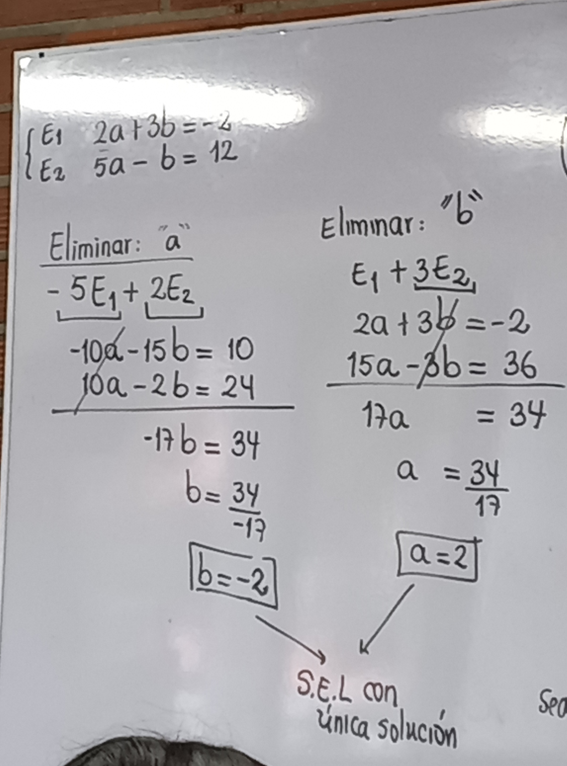 E1 2a+3b=-2
E2 5a-b=12
Eliminar: "a"
-5E1+2E2
-10a-15b=10
10a-2b=24
-17b=34
b=34/-17
b=-2
Eliminar: "b"
E1+3E2
2a+3b=-2
15a-3b=36
17a =34
a =34/17
a=2
S.E.L con
única solución